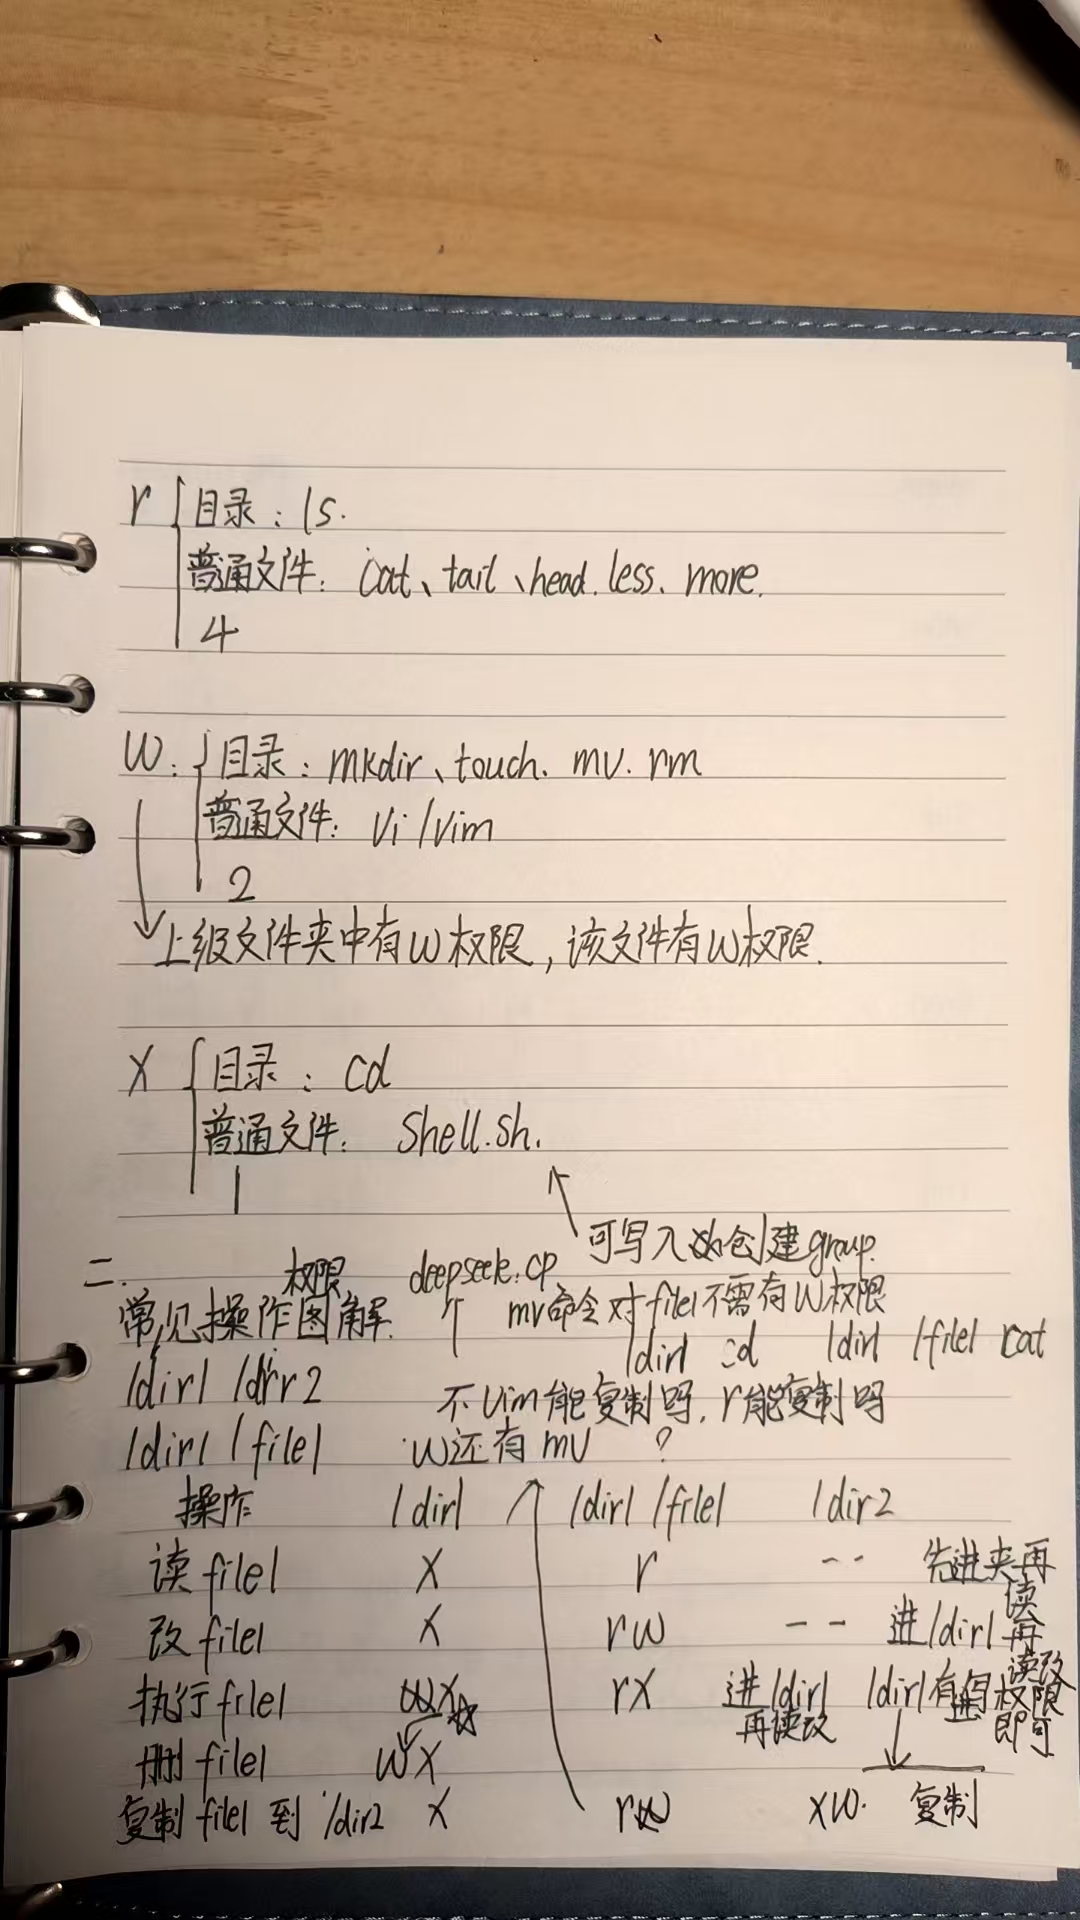 r { 目录：ls.
普通文件：cat、tail、head. less、more.
4
W： { 目录：mkdir、touch. mv. rm
普通文件：vi/vim
2
上级文件夹中有W权限，该文件有W权限.
X { 目录：cd
普通文件：Shell.sh.
1
可写入 创建group.
二. 权限 deepseek:cp
常见操作图解. mv命令对file1不需有W权限
/dir1 cd /dir1 /file1 cat
/dir1 /dir2 不vim能复制吗，r能复制吗
/dir1 /file1 W还有mv ？
操作 /dir1 /dir1 /file1 /dir2
读file1 X r -- 先进夹再读
改file1 X rw -- 进/dir1再读改
执行file1 X rX 进/dir1再读改 /dir1有 权限即可
删file1 WX
复制file1到/dir2 X r XW. 复制